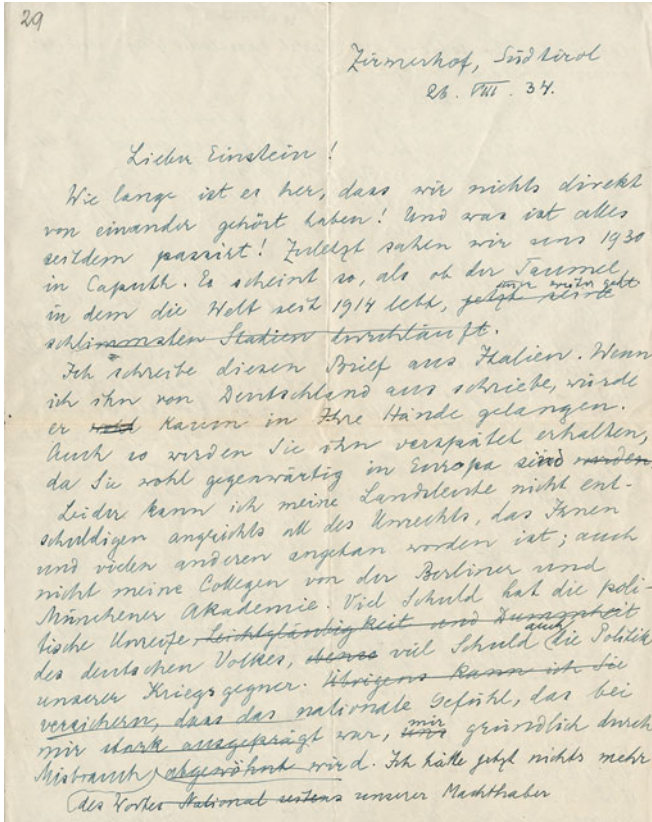 29
Zirmerhof, Südtirol
26. VIII. 34.
Lieber Einstein!
Wie lange ist es her, dass wir nichts direkt
von einander gehört haben! Und was ist alles
seitdem passirt! Zuletzt sahen wir uns 1930
in Caputh. Es scheint so, als ob der Taumel,
in dem die Welt seit 1914 lebt, jetzt seine
weiter geht
schlimmsten Stadien durchläuft.
Ich schreibe diesen Brief aus Italien. Wenn
ich ihn von Deutschland aus schriebe, würde
er wohl kaum in Ihre Hände gelangen.
Auch so werden Sie ihn verspätet erhalten,
da Sie wohl gegenwärtig in Europa sind werden
Leider kann ich meine Landsleute nicht ent-
schuldigen angesichts all des Unrechts, das Ihnen
und vielen anderen angetan worden ist; auch
nicht meine Collegen von der Berliner und
Münchener Akademie. Viel Schuld hat die poli-
tische Unreife, Leichtgläubigkeit und Dummheit
des deutschen Volkes, ebenso viel Schuld auch die Politik
unserer Kriegsgegner. Übrigens kann ich Sie
versichern, dass das nationale Gefühl, das bei
mir stark ausgeprägt war, uns mir gründlich durch
Misbrauch abgewöhnt wird. Ich hätte jetzt nichts mehr
des Wortes National seitens unserer Machthaber